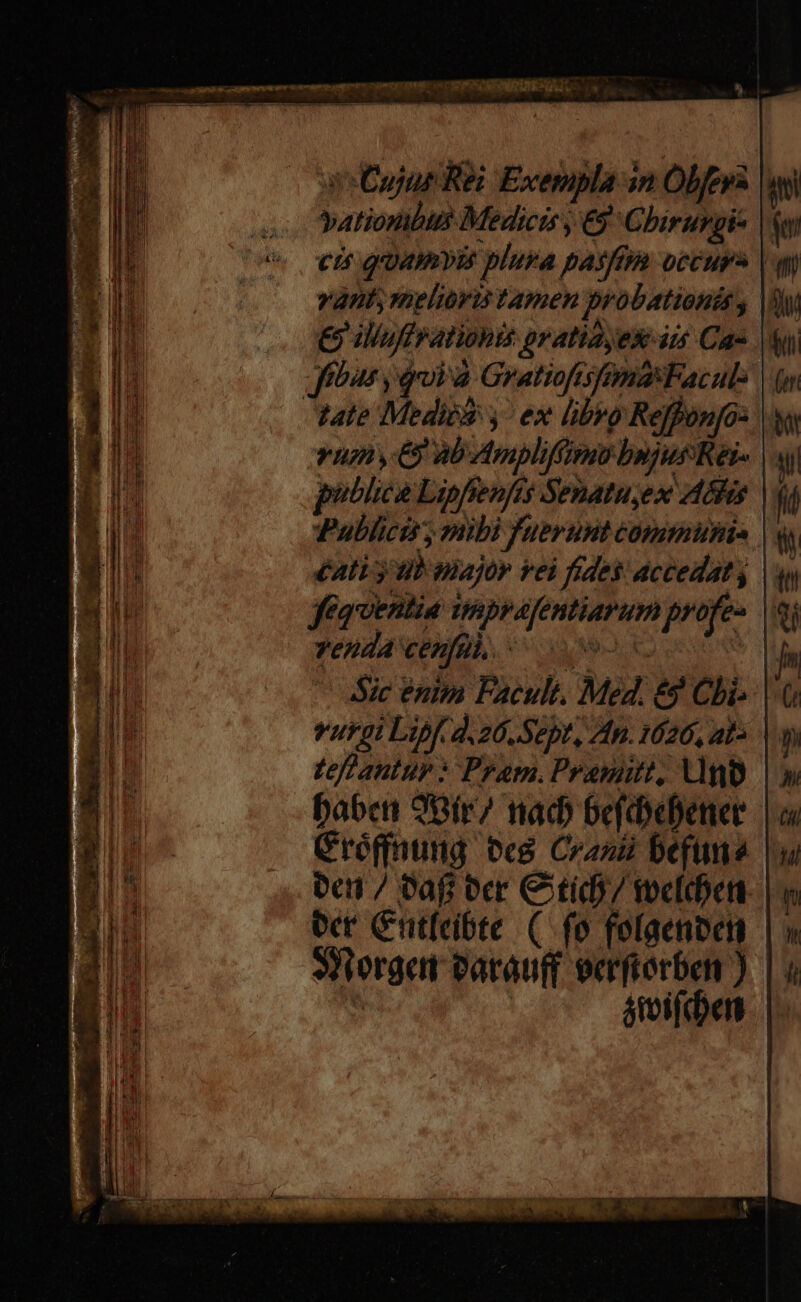 Cujus Rei Exempla in Obſer⸗
vationibus Medicis, & Chirurgi⸗
cis qvamvis plura paſſim occur⸗
rant, melioris tamen probationis,
& illuſtrationis gratiâ, ex iis Ca⸗
ſibus, qvi à Gratioſisſimâ Facul⸗
tate Medicâ, ex libro Reſponſo⸗
rum, & ab Ampliſſimo hujus Rei⸗
publicæ Lipſienſis Senatu, ex Actis
Publicis, mihi fuerunt communi⸗
cati, ut major rei fides accedat,
ſeqventia impræſentiarum profe⸗
renda cenſui.
Sic enim Facult. Med. & Chi⸗
rurgi Lipſ. d. 26. Sept. An. 1626. at⸗
teſtantur: Præm. Præmitt. Und
haben Wir / nach beſchehener
Eröffnung des Cranii befun⸗
den / daß der Stich / welchen
der Entleibte ( ſo folgenden
Morgen darauff verſtorben )
zwiſchen